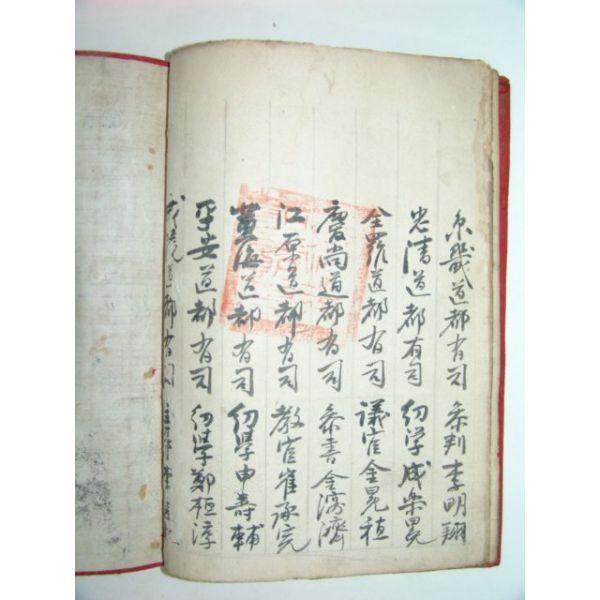 京畿道都有司 參判 李明翔
忠清道都有司 幼学 成樂冕
全羅道都有司 議官 金晃植
慶尚道都有司 參書 金濟
江原道都有司 教官 崔承完
黃海道都有司 幼學 申壽輔
平安道都有司 幼學 鄭桓淳
道都有司